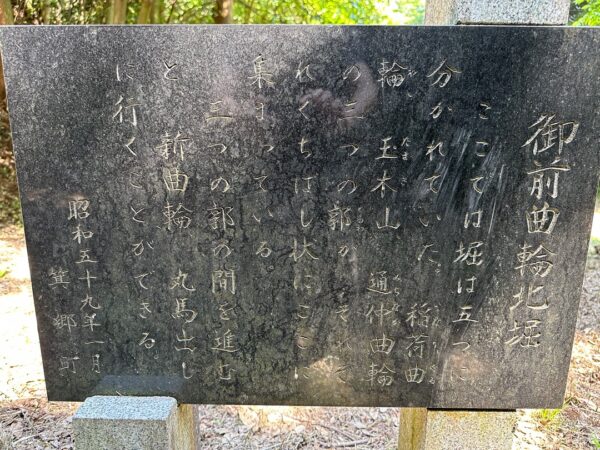 御前曲輪北堀
ここでは堀は五つに
分かれていた。稲荷曲
輪 玉木山 通仲曲輪
の三つの郭が それぞ
れくちばし状にここに
集まっている。
三つの郭の間を進む
と 新曲輪 丸馬出し
に行くことができる。
昭和五十九年一月
箕郷町